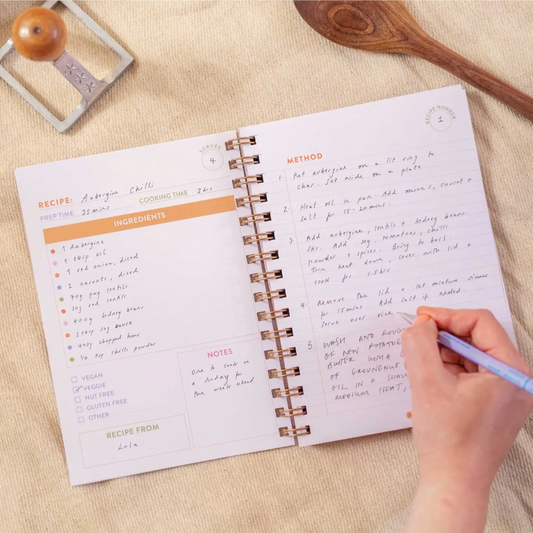 SERVES
4
RECIPE: Aubergine Chilli
PREP TIME 25 mins COOKING TIME 2 hrs
INGREDIENTS
1 Aubergine
1 tbsp oil
1 red onion, diced
2 carrots, diced
40g puy lentils
30g red lentils
400g kidney beans
3 tbsp soy sauce
400g chopped toms
1/4 tsp chilli powder
VEGAN
VEGGIE
NUT FREE
GLUTEN FREE
OTHER
NOTES
One to cook on
a Sunday for
the week ahead
RECIPE FROM
Lola
RECIPE NUMBER
1
METHOD
1. Put aubergine on a lit ring to
char. Set aside on a plate
2. Heat oil in pan. Add onions, carrot +
salt for 15-20mins.
3. Add aubergine, lentils + kidney beans.
Stir. Add soy, tomatoes, chilli
powder + spices. Bring to boil.
Turn heat down, cover with lid +
cook for 1.5 hrs
4. Remove the lid + let mixture simmer
for 15mins. Add salt if needed.
Serve over rice
5. WASH AND
OF NEW POTATOES
BUTTER
OF GROUNDNUT
OIL IN A
MEDIUM HEAT,